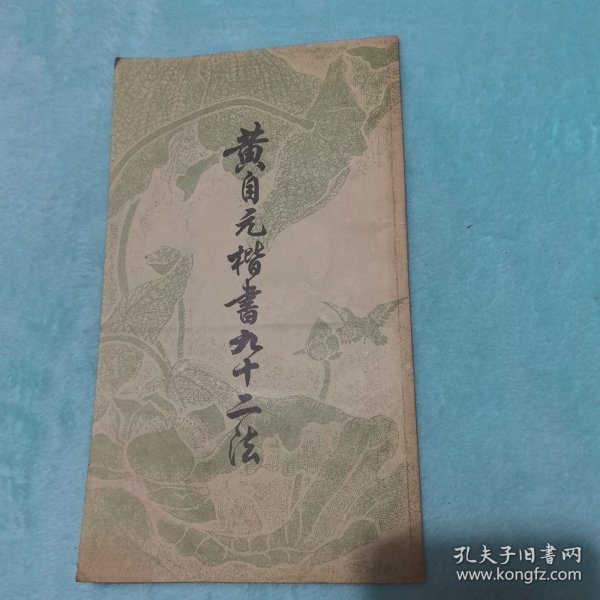 黄自元楷書九十二法
孔夫子旧書网
www.kongfz.com